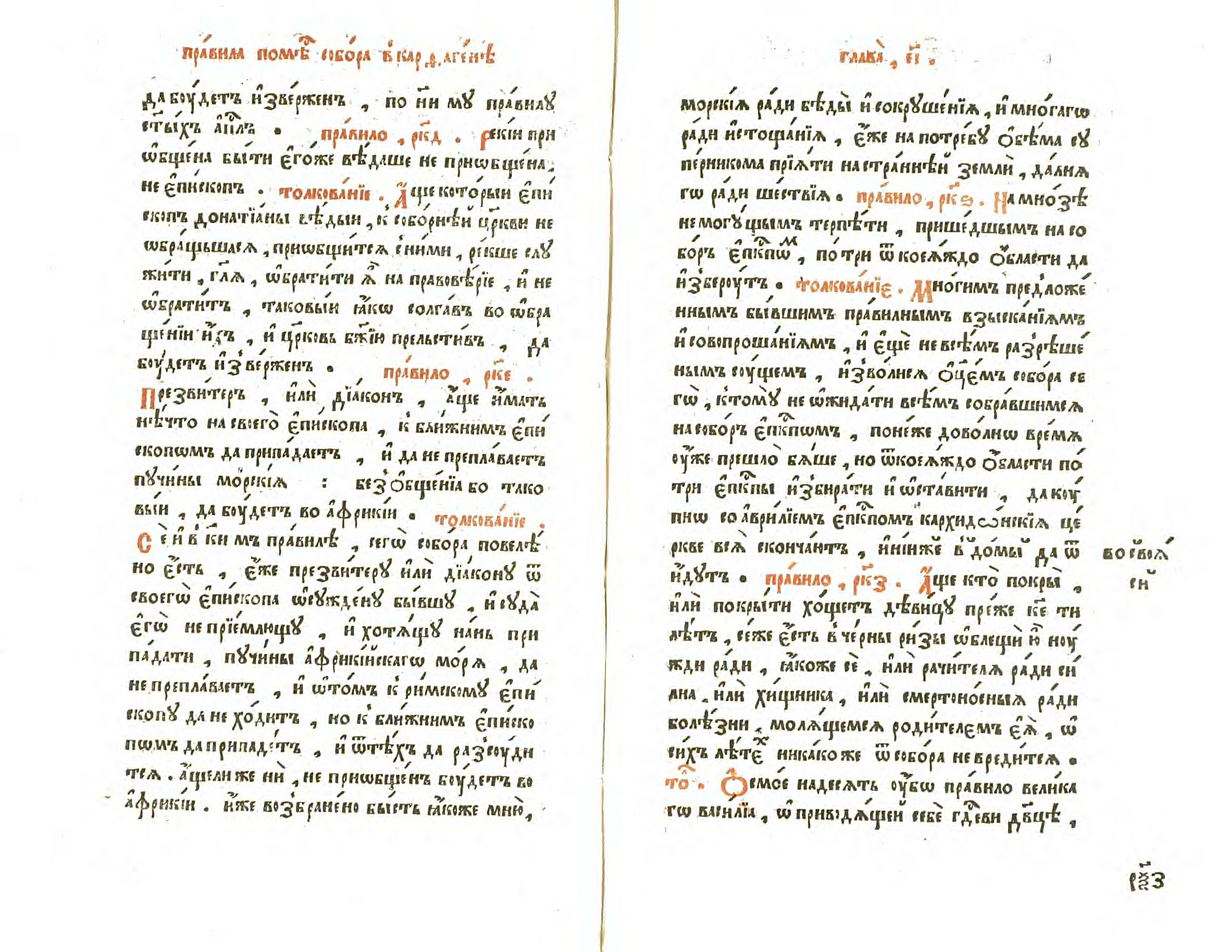 пра́вила помѣ́ собо́ра в̾карѳ.аге́нѣ
да бꙋ́детъ и҆зве́рженъ , по н҃и мꙋ пра́вилꙋ
ст҃ы́хъ а҆п҃лъ . пра́вило , рк҃д . Ре́кїи при
ѡ҆бще́на бы́ти є҆го́же вѣ́даше не приѡбще́на,
не є҆пи́скопъ . толкова́нїе . А҆́ще кото́рыи є҆пи
скопъ донатїа́ны вѣ́дыи , к̾ собо́рнѣй цр҃кви не
ѡ҆бра́щьшася , приѡбщи́тся с̾ни́ми , ре́кше слꙋ
жи́ти , гл҃я , ѡ҆брати́ти ѧ҆̀ на правовѣ́рїе , и҆ не
ѡ҆брати́тъ , таковы́и ꙗ҆́кѡ солга́въ во ѡ҆бра
ще́нїи и҆́хъ , и҆ цр҃ковь бж҃їю прельсти́въ , да
бꙋ́детъ и҆зве́рженъ . пра́вило , рк҃е .
Презви́теръ , и҆лѝ дїа́конъ , а҆́ще и҆́мать
нѣ́что на своего̀ є҆пи́скопа , к̾ бли́жнимъ є҆пи́
скопѡмъ да припа́даетъ , и҆ да не преплава́етъ
пꙋчи́ны мо́рскїѧ : без̾ ѻ҆бще́нїа бо тако
вы́и , да бꙋ́детъ во а҆́фрикїи . толкова́нїе .
Сѐ и҆ в̾ к҃и мъ пра́вилѣ , сегѡ̀ собо́ра повелѣ́
но є҆́сть , є҆́же презви́терꙋ и҆лѝ дїа́конꙋ ѿ
своегѡ̀ є҆пи́скопа ѡ҆сꙋжде́нꙋ бы́вшꙋ , и҆ сꙋда̀
є҆гѡ̀ не прїе́млющꙋ , и҆ хотѧ́щꙋ на́нь при
па́дати , пꙋчи́ны а҆фрикі́йскагѡ мо́рѧ , да
не преплава́етъ , и҆ ѡ҆то́мъ к̾ ри́мскомꙋ є҆пи́
скопꙋ да не хо́дитъ , но к̾ бли́жнимъ є҆пи́ско
пѡмъ да припаде́тъ , и҆ ѿтѣ́хъ да раз̾сꙋ́ди
тсѧ . а҆́щели же нѝ , не приѡбще́нъ бꙋ́детъ во
а҆́фрикїи . и҆́же воз̾бране́но бы́сть ꙗ҆́коже мню̀ ,
глава̀ , є҃і .
морскі́ѧ ра́ди бѣды̀ и҆ сокрꙋше́нїѧ , и҆ мно́гагѡ
ра́ди и҆стоща́нїѧ , є҆́же на потре́бꙋ ѻ҆бѣ́ма сꙋ
пе́рникома прїѧ́ти на стра́ннѣй землѝ , да́лнѧ
гѡ ра́ди ше́ствїѧ . пра́вило , рк҃ѕ . На мно́зѣ
немогꙋ́щымъ терпѣ́ти , прише́дшымъ на со
бо́ръ є҆пк҃пѡмъ , по́ три ѿ коеѧ́ждо ѻ҆́бласти да
и҆збєрꙋ́тъ . толкова́нїе . Мно́гимъ предложе́
ннымъ бы́вшимъ пра́вилнымъ взыска́нїѧмъ
и҆ совопроша́нїѧмъ , и҆ є҆щѐ не всѣ́мъ разрѣше́
нымъ сꙋ́щемъ , и҆зво́лисѧ ѻ҆ц҃є́мъ собо́ра се
гѡ̀ , к̾томꙋ̀ не ѡ҆жида́ти всѣ́мъ собра́вшимсѧ
на собо́ръ є҆пк҃пѡмъ , поне́же дово́лнѡ вре́мѧ
ᲂу҆жѐ прешло̀ бѧ́ше , но ѿкоеѧ́ждо ѻ҆́бласти по́
три̑ є҆пк҃пы и҆збира́ти и҆ ѡ҆ста́вити , да кꙋ́
пнѡ со а҆врилі́емъ є҆пк҃помъ кархидѡ́нскїѧ це́
ркве всѧ̀ сконча́ютъ , и҆ни́иже в̾ до́мы да ѿ
и҆́дꙋтъ . пра́вило , рк҃з . А҆́ще кто̀ покры̀ ,
и҆лѝ покры́ти хо́щетъ дѣви́цꙋ пре́же к҃е ти
лѣ́тъ , се́же є҆́сть в̾ че́рны ри́зы ѡ҆блещѝ ю҆̀ нꙋ́
жди ра́ди , ꙗ҆́коже сѐ , и҆лѝ рачи́телѧ ра́ди си́
лна . и҆лѝ хи́щника , и҆лѝ смертоно́сныѧ ра́ди
болѣ́зни , молѧ́щемсѧ роди́телємъ є҆ѧ̀ , ѡ҆
си́хъ лѣ́тѣхъ ника́коже ѿ собо́ра не вреди́тсѧ .
то̑ . Ѻ҆смо́е на́десѧть ᲂу҆́бѡ пра́вило вели́ка
гѡ васи́лїа , ѡ҆ приводѧ́щей себѐ гд҇еви дв҃цѣ ,
во своѧ̑
сѝ
рл҃з